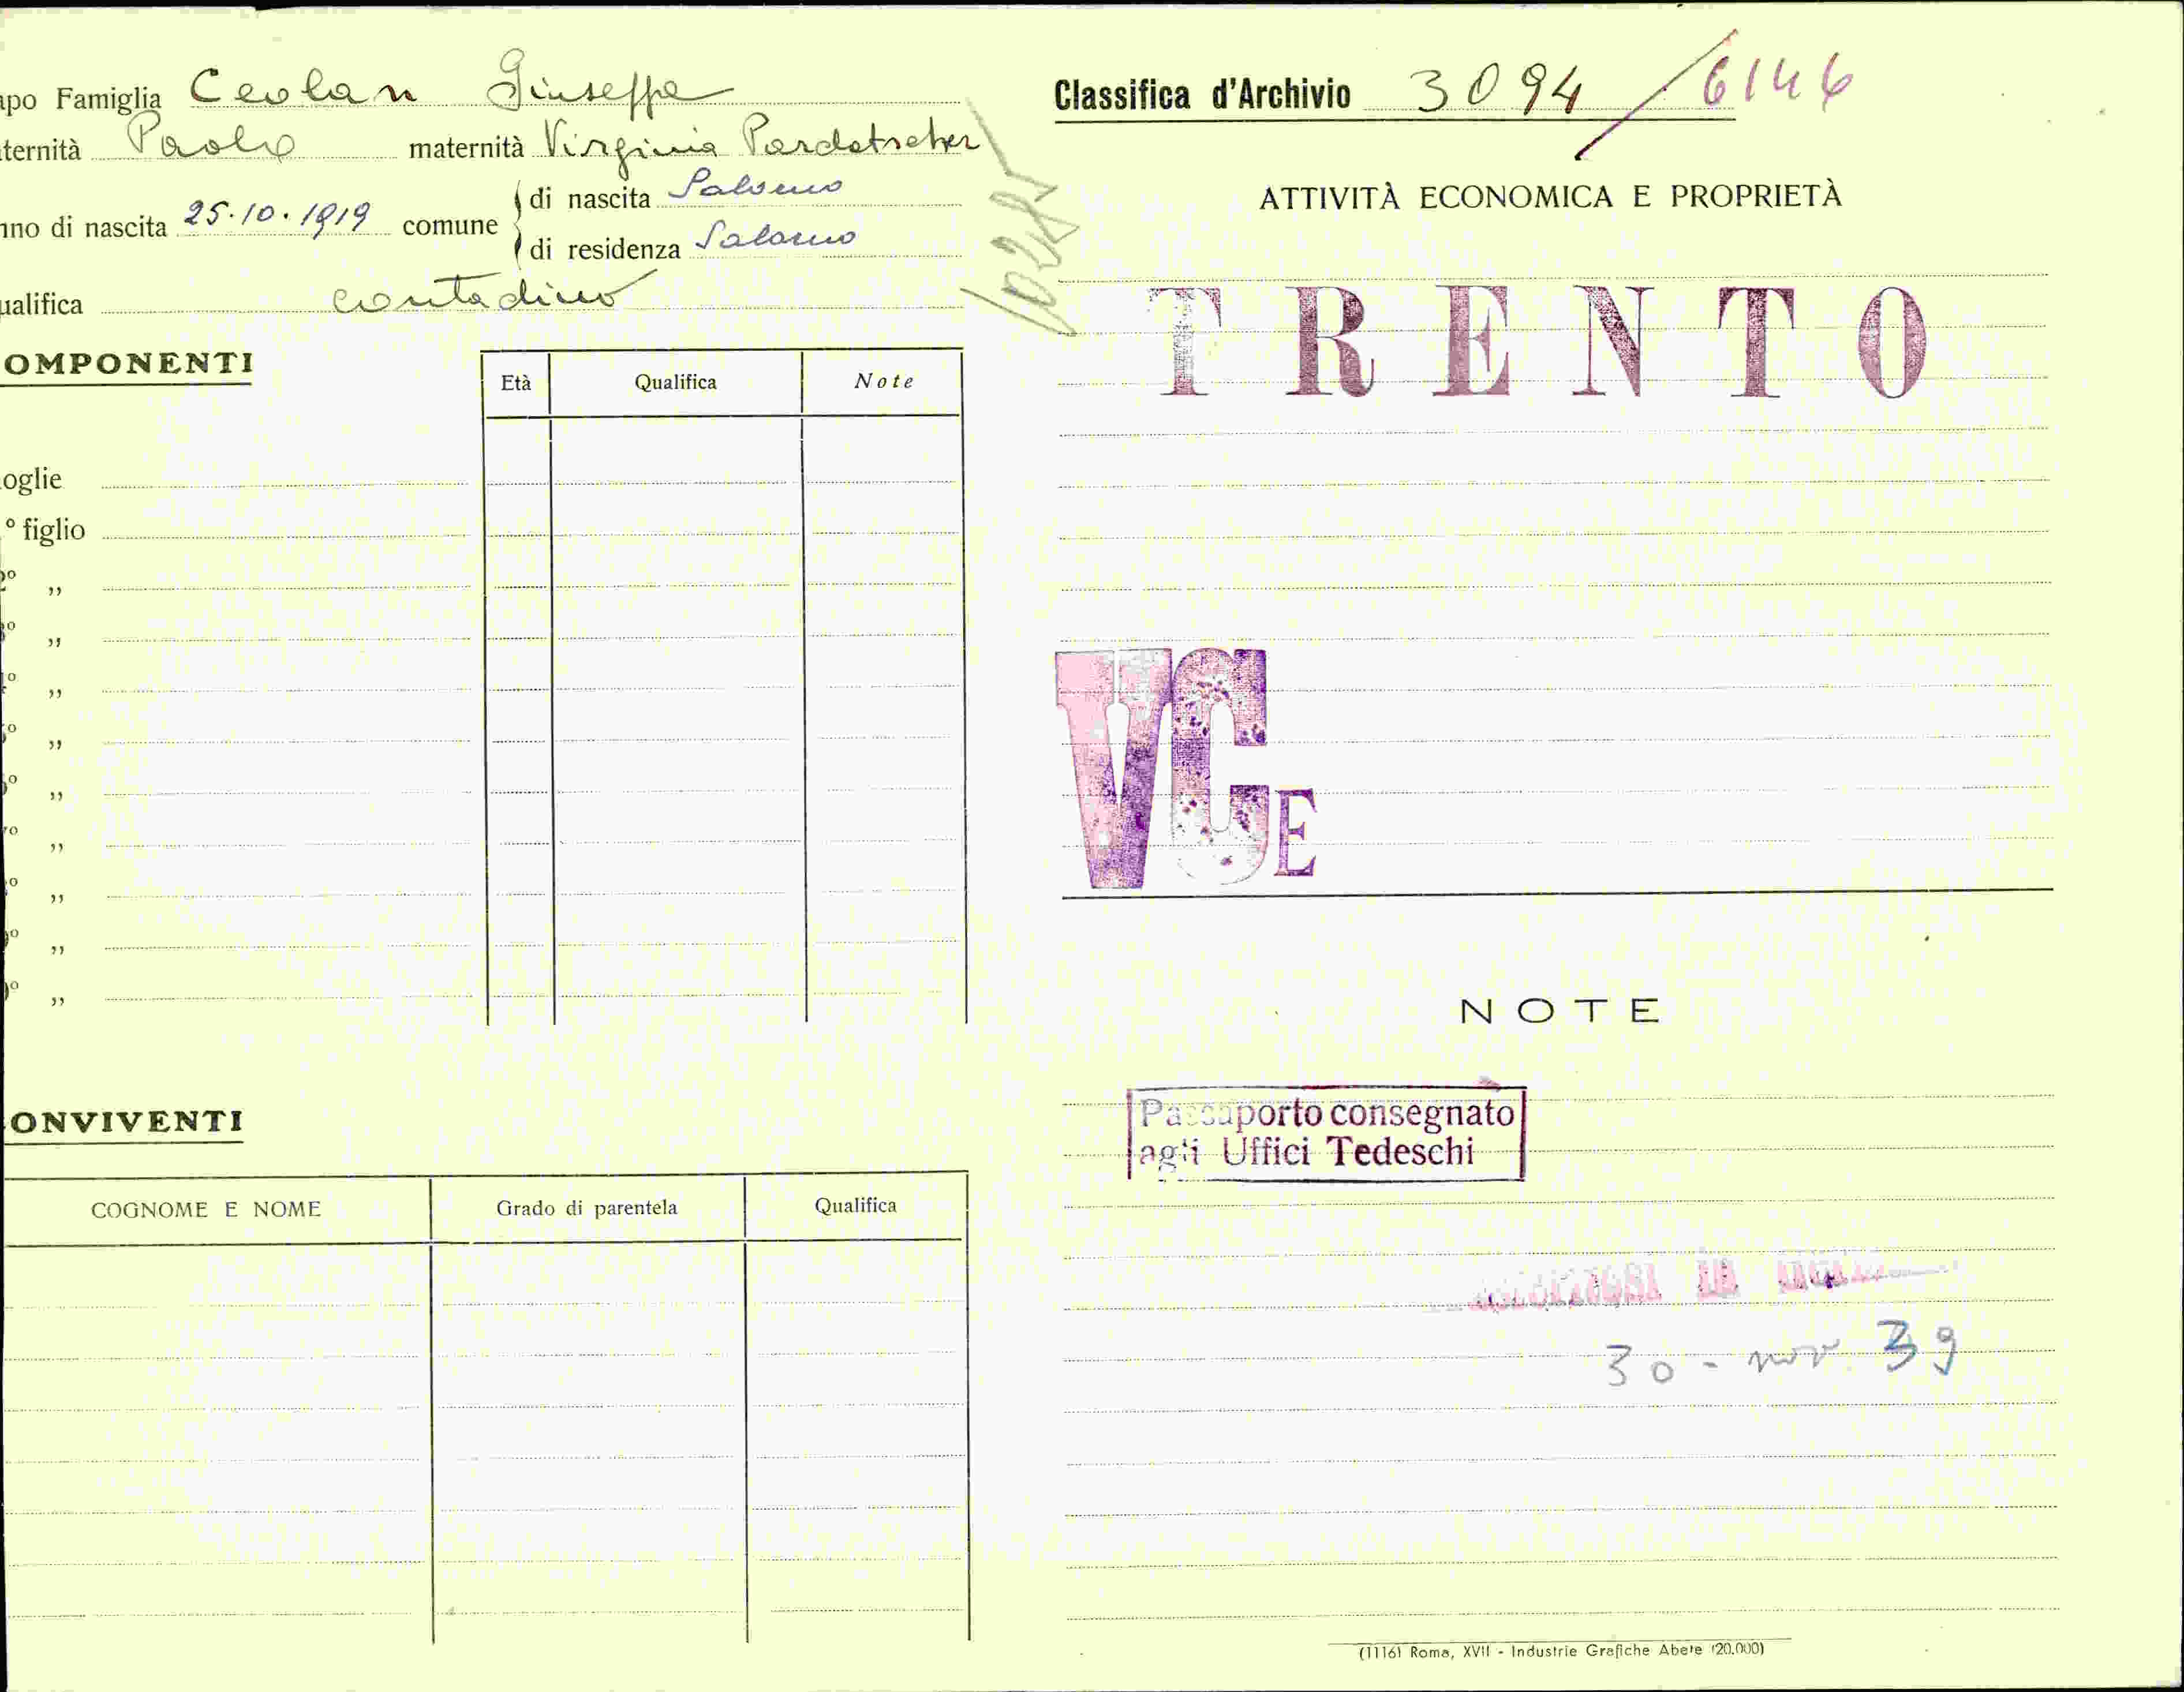 apo Famiglia Ceolan Giuseppe
ternità Paolo maternità Virginia Pardatscher
nno di nascita 25.10.1919 comune di nascita Salorno
di residenza Salorno
ualifica contadino
OMPONENTI
Età Qualifica Note
oglie
° figlio
º ,,
º ,,
º ,,
º ,,
º ,,
º ,,
º ,,
º ,,
º ,,
ONVIVENTI
COGNOME E NOME Grado di parentela Qualifica
Classifica d'Archivio 3094/6146
ATTIVITÀ ECONOMICA E PROPRIETÀ
TRENTO
VCE
NOTE
Passaporto consegnato
agli Uffici Tedeschi
30 - nov. 39
(1116) Roma, XVII - Industrie Grafiche Abete (20.000)